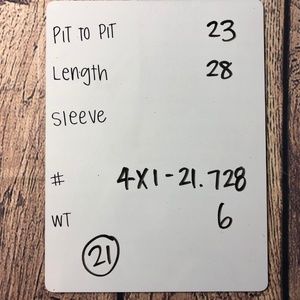 PIT TO PIT 23
Length 28
Sleeve
# 4X1-21.728
WT 6
21